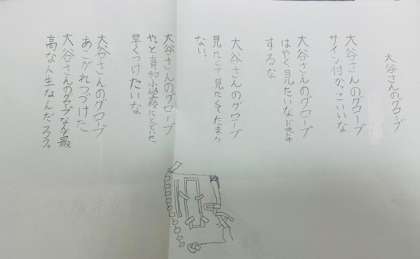 大谷さんのグローブ
大谷さんのグローブ
サイン付かっこいいな
大谷さんのグローブ
はやく見たいな
するな
大谷さんのグローブ
見たくて見たくてたまら
ない。
大谷さんのグローブ
やっと 小学校にとどいた
早くつけたいな
大谷さんのグローブ
あこがれつづけた
大谷さんの 最
高な人生なんだろうな